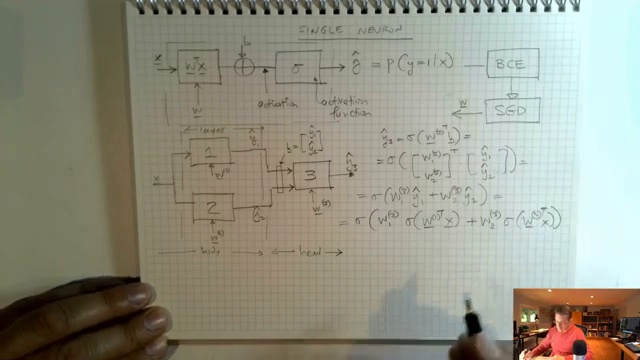 SINGLE NEURON
x
wᵀx
b
σ
ŷ = P(y=1/x)
BCE
w
activation
activation function
SGD
w
layer
ŷ₁
h = [ŷ₁ ŷ₂]
1
w⁽¹⁾
x
2
w⁽²⁾
ŷ₂
3
w⁽³⁾
ŷ₃
body
head
ŷ₃ = σ(w⁽³⁾ᵀ h) =
= σ([w₁⁽³⁾ w₂⁽³⁾]ᵀ [ŷ₁ ŷ₂]) =
= σ(w₁⁽³⁾ ŷ₁ + w₂⁽³⁾ ŷ₂) =
= σ(w₁⁽³⁾ σ(w⁽¹⁾ᵀ x) + w₂⁽³⁾ σ(w⁽²⁾ᵀ x))